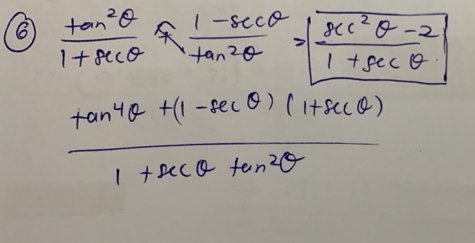 ⑥ tan²θ / 1 + secθ + 1 - secθ / tan²θ = sec²θ - 2 / 1 + sec θ.
tan⁴θ + (1 - sec θ) (1 + secθ) / 1 + sec θ tan²θ